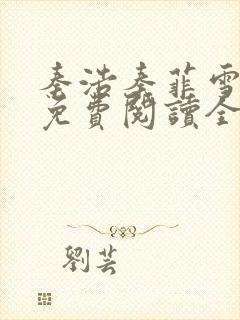 秦浩秦菲雪
免費閱讀全
劉芸